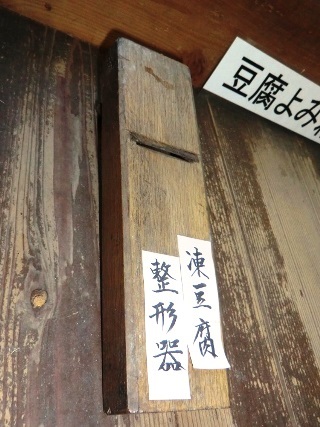 豆腐よみ
凍豆腐
整形器